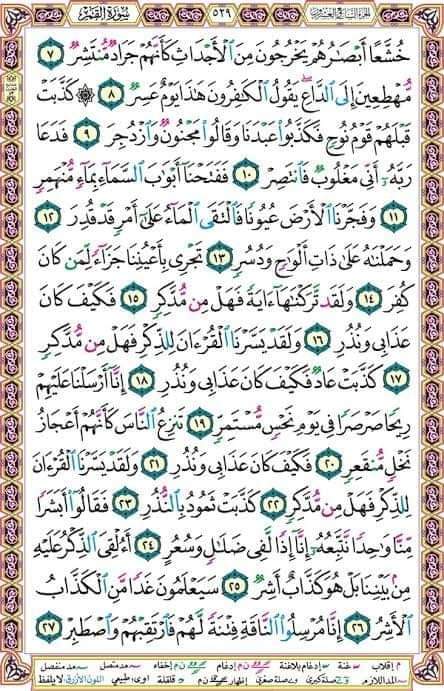 سُورَةُ القَمَرِ ٥٢٩ الجزء السابع والعشرون
خُشَّعًا أَبْصَٰرُهُمْ يَخْرُجُونَ مِنَ ٱلْأَجْدَاثِ كَأَنَّهُمْ جَرَادٌ مُّنتَشِرٌ ٧
مُّهْطِعِينَ إِلَى ٱلدَّاعِ يَقُولُ ٱلْكَٰفِرُونَ هَٰذَا يَوْمٌ عَسِرٌ ٨ ۞ كَذَّبَتْ
قَبْلَهُمْ قَوْمُ نُوحٍ فَكَذَّبُوا۟ عَبْدَنَا وَقَالُوا۟ مَجْنُونٌ وَٱزْدُجِرَ ٩ فَدَعَا
رَبَّهُۥٓ أَنِّى مَغْلُوبٌ فَٱنتَصِرْ ١٠ فَفَتَحْنَآ أَبْوَٰبَ ٱلسَّمَآءِ بِمَآءٍ مُّنْهَمِرٍ
١١ وَفَجَّرْنَا ٱلْأَرْضَ عُيُونًا فَٱلْتَقَى ٱلْمَآءُ عَلَىٰٓ أَمْرٍ قَدْ قُدِرَ ١٢
وَحَمَلْنَٰهُ عَلَىٰ ذَاتِ أَلْوَٰحٍ وَدُسُرٍ ١٣ تَجْرِى بِأَعْيُنِنَا جَزَآءً لِّمَن كَانَ
كُفِرَ ١٤ وَلَقَد تَّرَكْنَٰهَآ ءَايَةً فَهَلْ مِن مُّدَّكِرٍ ١٥ فَكَيْفَ كَانَ
عَذَابِى وَنُذُرِ ١٦ وَلَقَدْ يَسَّرْنَا ٱلْقُرْءَانَ لِلذِّكْرِ فَهَلْ مِن مُّدَّكِرٍ
١٧ كَذَّبَتْ عَادٌ فَكَيْفَ كَانَ عَذَابِى وَنُذُرِ ١٨ إِنَّآ أَرْسَلْنَا عَلَيْهِمْ
رِيحًا صَرْصَرًا فِى يَوْمِ نَحْسٍ مُّسْتَمِرٍّ ١٩ تَنزِعُ ٱلنَّاسَ كَأَنَّهُمْ أَعْجَازُ
نَخْلٍ مُّنقَعِرٍ ٢٠ فَكَيْفَ كَانَ عَذَابِى وَنُذُرِ ٢١ وَلَقَدْ يَسَّرْنَا ٱلْقُرْءَانَ
لِلذِّكْرِ فَهَلْ مِن مُّدَّكِرٍ ٢٢ كَذَّبَتْ ثَمُودُ بِٱلنُّذُرِ ٢٣ فَقَالُوٓا۟ أَبَشَرًا
مِّنَّا وَٰحِدًا نَّتَّبِعُهُۥٓ إِنَّآ إِذًا لَّفِى ضَلَٰلٍ وَسُعُرٍ ٢٤ أَءُلْقِىَ ٱلذِّكْرُ عَلَيْهِ
مِنۢ بَيْنِنَا بَلْ هُوَ كَذَّابٌ أَشِرٌ ٢٥ سَيَعْلَمُونَ غَدًا مَّنِ ٱلْكَذَّابُ
ٱلْأَشِرُ ٢٦ إِنَّا مُرْسِلُوا۟ ٱلنَّاقَةِ فِتْنَةً لَّهُمْ فَٱرْتَقِبْهُمْ وَٱصْطَبِرْ ٢٧